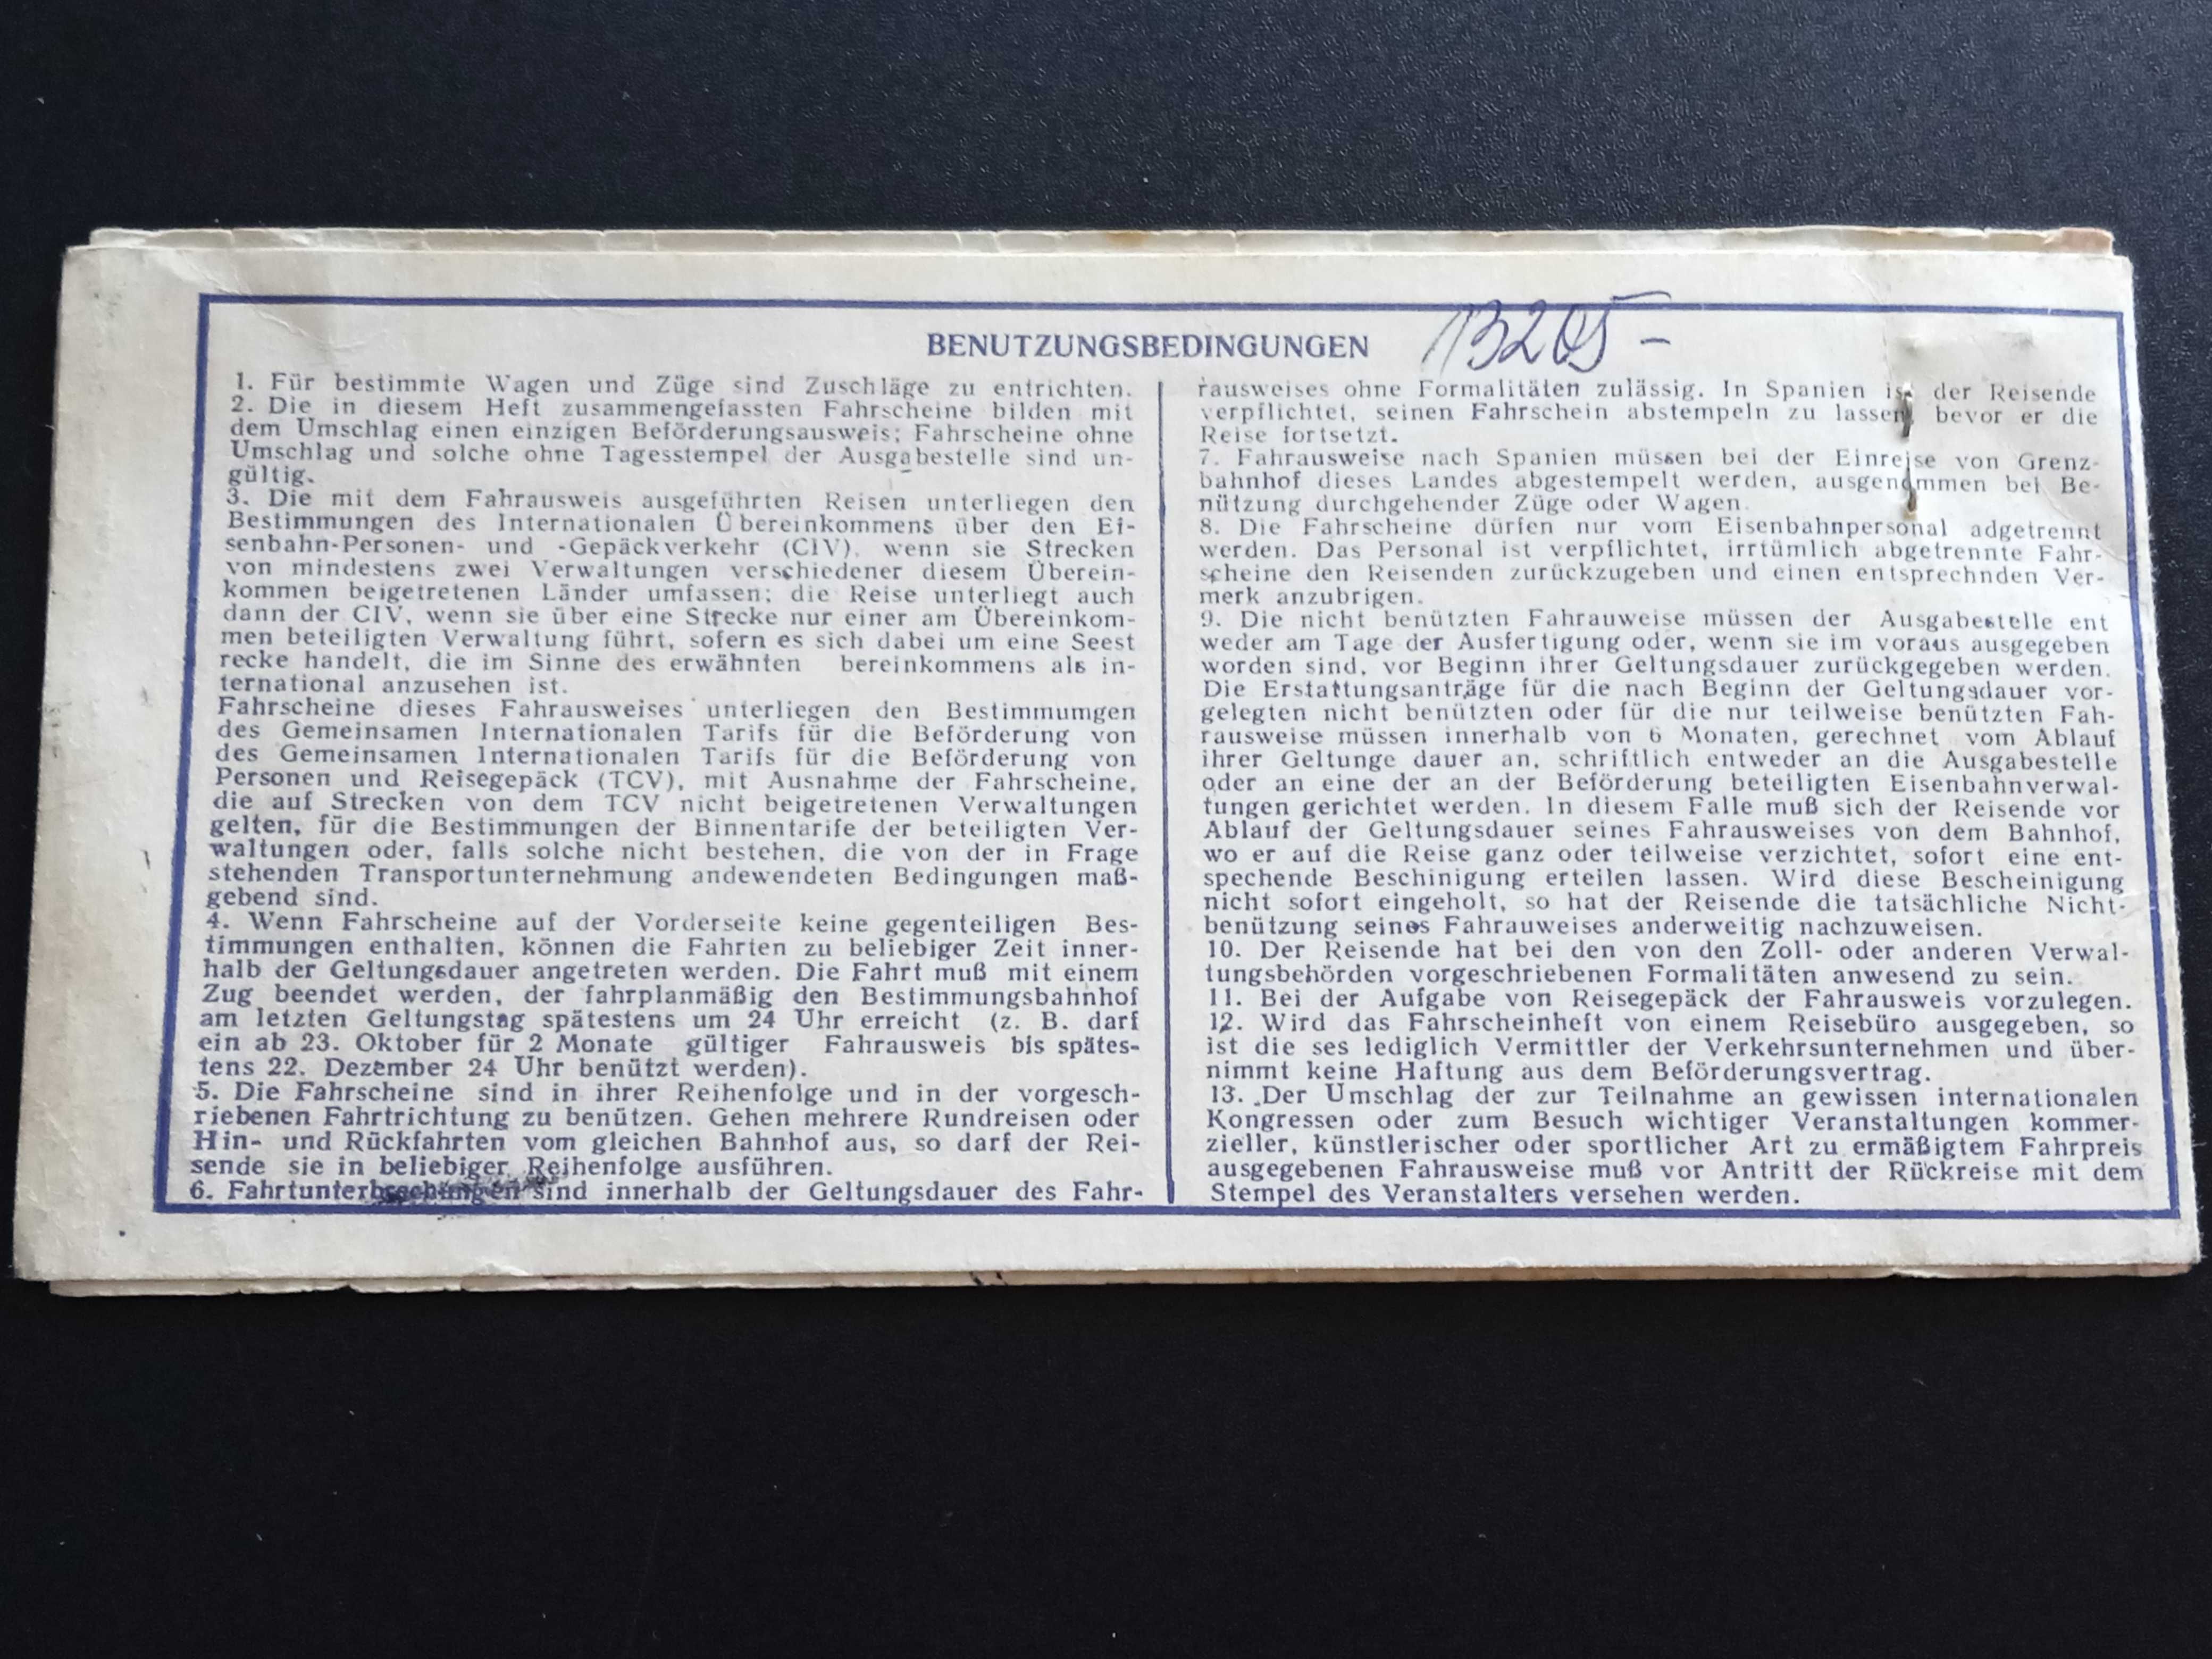 BENUTZUNGSBEDINGUNGEN
13205-
1. Für bestimmte Wagen und Züge sind Zuschläge zu entrichten.
2. Die in diesem Heft zusammengefassten Fahrscheine bilden mit
dem Umschlag einen einzigen Beförderungsausweis; Fahrscheine ohne
Umschlag und solche ohne Tagesstempel der Ausgabestelle sind un-
gültig.
3. Die mit dem Fahrausweis ausgeführten Reisen unterliegen den
Bestimmungen des Internationalen Übereinkommens über den Ei-
senbahn-Personen- und -Gepäckverkehr (CIV), wenn sie Strecken
von mindestens zwei Verwaltungen verschiedener diesem Überein-
kommen beigetretenen Länder umfassen; die Reise unterliegt auch
dann der CIV, wenn sie über eine Strecke nur einer am Übereinkom-
men beteiligten Verwaltung führt, sofern es sich dabei um eine Seest
recke handelt, die im Sinne des erwähnten bereinkommens als in-
ternational anzusehen ist.
Fahrscheine dieses Fahrausweises unterliegen den Bestimmumgen
des Gemeinsamen Internationalen Tarifs für die Beförderung von
des Gemeinsamen Internationalen Tarifs für die Beförderung von
Personen und Reisegepäck (TCV), mit Ausnahme der Fahrscheine,
die auf Strecken von dem TCV nicht beigetretenen Verwaltungen
gelten, für die Bestimmungen der Binnentarife der beteiligten Ver-
waltungen oder, falls solche nicht bestehen, die von der in Frage
stehenden Transportunternehmung andewendeten Bedingungen maß-
gebend sind.
4. Wenn Fahrscheine auf der Vorderseite keine gegenteiligen Bes-
timmungen enthalten, können die Fahrten zu beliebiger Zeit inner-
halb der Geltungsdauer angetreten werden. Die Fahrt muß mit einem
Zug beendet werden, der fahrplanmäßig den Bestimmungsbahnhof
am letzten Geltungstag spätestens um 24 Uhr erreicht (z. B. darf
ein ab 23. Oktober für 2 Monate gültiger Fahrausweis bis spätes-
tens 22. Dezember 24 Uhr benützt werden).
5. Die Fahrscheine sind in ihrer Reihenfolge und in der vorgesch-
riebenen Fahrtrichtung zu benützen. Gehen mehrere Rundreisen oder
Hin- und Rückfahrten vom gleichen Bahnhof aus, so darf der Rei-
sende sie in beliebiger Reihenfolge ausführen.
6. Fahrtunterbrechungen sind innerhalb der Geltungsdauer des Fahr-
rausweises ohne Formalitäten zulässig. In Spanien ist der Reisende
verpflichtet, seinen Fahrschein abstempeln zu lassen, bevor er die
Reise fortsetzt.
7. Fahrausweise nach Spanien müssen bei der Einreise von Grenz-
bahnhof dieses Landes abgestempelt werden, ausgenommen bei Be-
nützung durchgehender Züge oder Wagen.
8. Die Fahrscheine dürfen nur vom Eisenbahnpersonal adgetrennt
werden. Das Personal ist verpflichtet, irrtümlich abgetrennte Fahr-
scheine den Reisenden zurückzugeben und einen entsprechnden Ver-
merk anzubrigen.
9. Die nicht benützten Fahrauweise müssen der Ausgabestelle ent
weder am Tage der Ausfertigung oder, wenn sie im voraus ausgegeben
worden sind, vor Beginn ihrer Geltungsdauer zurückgegeben werden.
Die Erstattungsanträge für die nach Beginn der Geltungsdauer vor-
gelegten nicht benützten oder für die nur teilweise benützten Fah-
rausweise müssen innerhalb von 6 Monaten, gerechnet vom Ablauf
ihrer Geltunge dauer an, schriftlich entweder an die Ausgabestelle
oder an eine der an der Beförderung beteiligten Eisenbahnverwal-
tungen gerichtet werden. In diesem Falle muß sich der Reisende vor
Ablauf der Geltungsdauer seines Fahrausweises von dem Bahnhof,
wo er auf die Reise ganz oder teilweise verzichtet, sofort eine ent-
spechende Beschinigung erteilen lassen. Wird diese Bescheinigung
nicht sofort eingeholt, so hat der Reisende die tatsächliche Nicht-
benützung seines Fahrauweises anderweitig nachzuweisen.
10. Der Reisende hat bei den von den Zoll- oder anderen Verwal-
tungsbehörden vorgeschriebenen Formalitäten anwesend zu sein.
11. Bei der Aufgabe von Reisegepäck der Fahrausweis vorzulegen.
12. Wird das Fahrscheinheft von einem Reisebüro ausgegeben, so
ist die ses lediglich Vermittler der Verkehrsunternehmen und über-
nimmt keine Haftung aus dem Beförderungsvertrag.
13. Der Umschlag der zur Teilnahme an gewissen internationalen
Kongressen oder zum Besuch wichtiger Veranstaltungen kommer-
zieller, künstlerischer oder sportlicher Art zu ermäßigtem Fahrpreis
ausgegebenen Fahrausweise muß vor Antritt der Rückreise mit dem
Stempel des Veranstalters versehen werden.